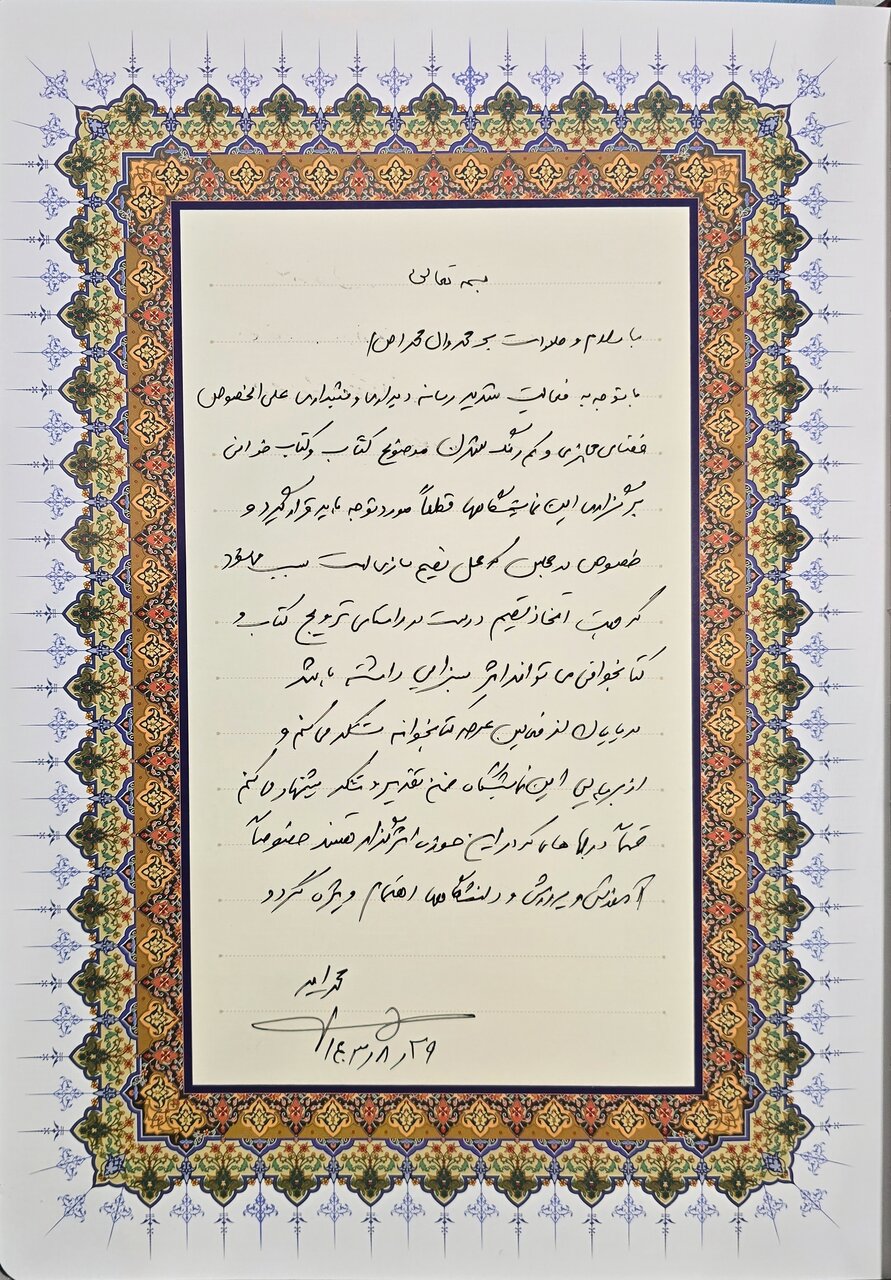 بسمه تعالی
با سلام و صلوات بر محمد و آل محمد (ص)
با توجه به فعالیت شدید رسانه دیداری و شنیداری علی الخصوص
فضای مجازی و کم رنگ شدن موضوع کتاب و کتاب خوانی
برگزاری این نمایشگاهها قطعاً مورد توجه باید قرار گیرد و
خصوص در مجلس که محل تصمیم سازی است سبب میشود
که جهت اتخاذ تصمیم درست در راستای ترویج کتاب و
کتابخوانی می تواند اثر بسزایی داشته باشد
در پایان از فعالین عرصه کتابخوانه تشکر می کنم و
از برپایی این نمایشگاه ضمن تقدیر و تشکر پیشنهاد می کنم
حتماً در جاهایی که در این حوزه اثرگذار هستند خصوصاً
آموزش و پرورش و دانشگاهها اهتمام ویژه گردد
محمد امیر
۱۴۰۳/۸/۲۹